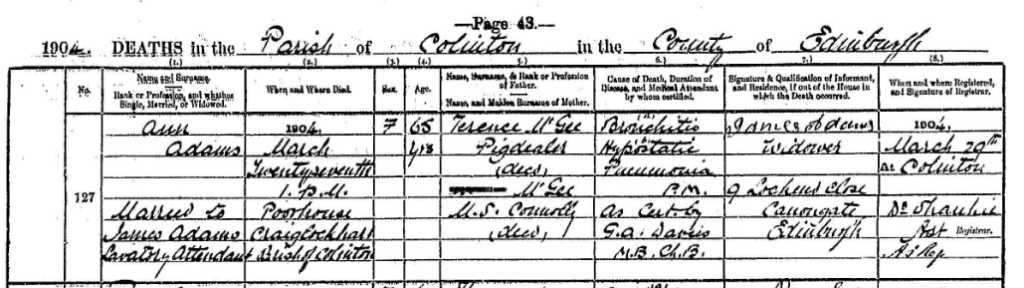 —Page 43.—
1904. DEATHS in the Parish of Colinton in the County of Edinburgh
(1.) (2.) (3.) (4.) (5.) (6.) (7.) (8.)
No.
Name and Surname.
Rank or Profession, and whether Single, Married, or Widowed.
When and Where Died.
Sex.
Age.
Name, Surname, & Rank or Profession of Father.
Name, and Maiden Surname of Mother.
Cause of Death, Duration of Disease, and Medical Attendant by whom certified.
Signature & Qualification of Informant, and Residence, if out of the House in which the Death occurred.
When and where Registered, and Signature of Registrar.
127
Ann
Adams
Married to
James Adams
Lavatory Attendant
1904.
March
Twentyseventh
1. P.M.
Poorhouse
Craiglockhart
Parish of Colinton
F
65
yrs
Terence McGee
Pigdealer
(dec)
McGee
M.S. Connolly
(dec)
Bronchitis
Hypostatic
Pneumonia
P.M.
As Cert. by
G.A. Davies
M.B. Ch.B.
James Adams
Widower
9 Lochend Close
Canongate
Edinburgh
1904.
March 29th
At Colinton
Asst Registrar.